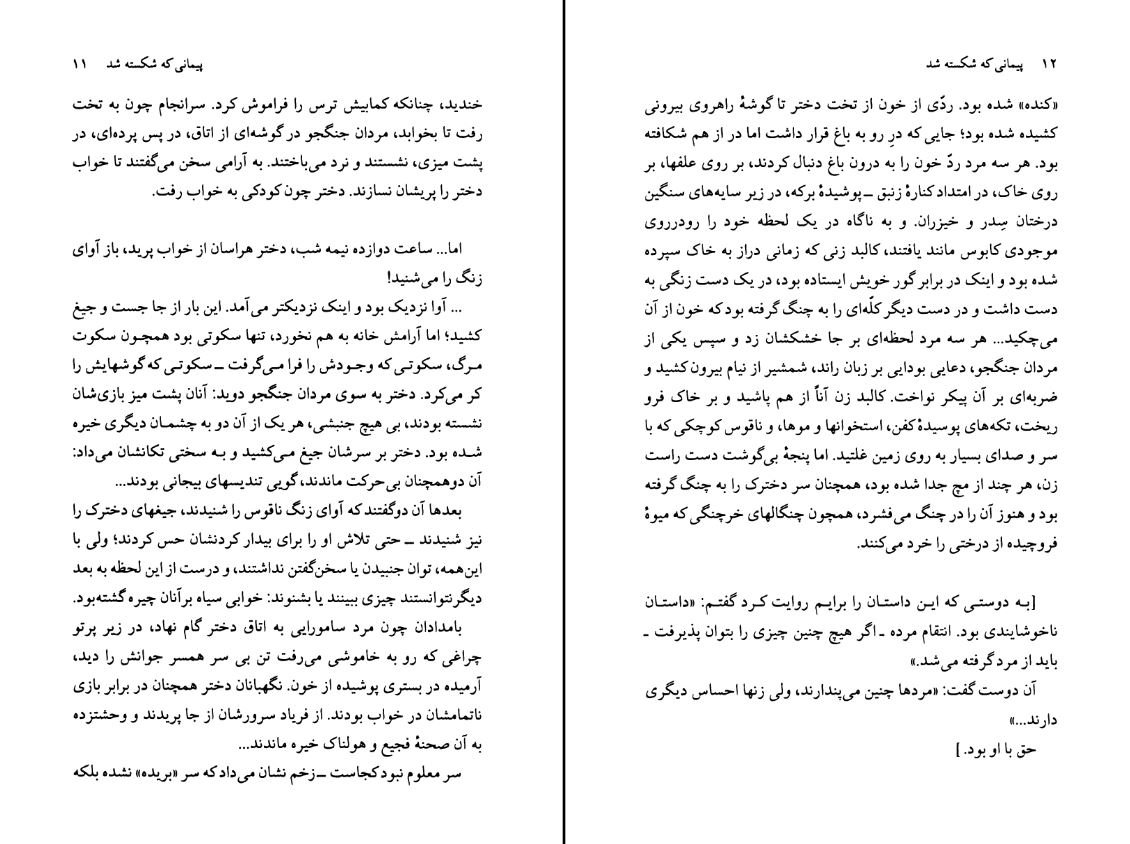 پیمانی که شکسته شد ۱۱
خندید، چنانکه کمابیش ترس را فراموش کرد. سرانجام چون به تخت
رفت تا بخوابد، مردان جنگجو در گوشه‌ای از اتاق، در پس پرده‌ای، در
پشت میزی، نشستند و نرد می‌باختند. به آرامی سخن می‌گفتند تا خواب
دختر را پریشان نسازند. دختر چون کودکی به خواب رفت.
اما... ساعت دوازده نیمه شب، دختر هراسان از خواب پرید، باز آوای
زنگ را می‌شنید!
... آوا نزدیک بود و اینک نزدیکتر می‌آمد. این بار از جا جست و جیغ
کشید؛ اما آرامش خانه به هم نخورد، تنها سکوتی بود همچـون سکوت
مـرگ، سکوتـی که وجـودش را فرا مـی‌گرفت ــ سکوتـی که گوشهایش را
کر می‌کرد. دختر به سوی مردان جنگجو دوید: آنان پشت میز بازی‌شان
نشسته بودند، بی هیچ جنبشی، هر یک از آن دو به چشمـان دیگری خیره
شـده بود. دختر بر سرشان جیغ مـی‌کشید و بـه سختی تکانشان می‌داد:
آن دوهمچنان بی‌حرکت ماندند، گویی تندیسهای بیجانی بودند...
بعدها آن دوگفتند که آوای زنگ ناقوس را شنیدند، جیغهای دخترک را
نیز شنیدند ــ حتی تلاش او را برای بیدار کردنشان حس کردند؛ ولی با
این‌همه، توان جنبیدن یا سخن‌گفتن نداشتند، و درست از این لحظه به بعد
دیگرنتوانستند چیزی ببینند یا بشنوند: خوابی سیاه برآنان چیره گشته‌بود.
بامدادان چون مرد سامورایی به اتاق دختر گام نهاد، در زیر پرتو
چراغی که رو به خاموشی می‌رفت تن بی سر همسر جوانش را دید،
آرمیده در بستری پوشیده از خون. نگهبانان دختر همچنان در برابر بازی
ناتمامشان در خواب بودند. از فریاد سرورشان از جا پریدند و وحشتزده
به آن صحنهٔ فجیع و هولناک خیره ماندند...
سر معلوم نبودکجاست ــ زخم نشان می‌دادکه سر «بریده» نشده بلکه
۱۲ پیمانی که شکسته شد
«کنده» شده بود. ردّی از خون از تخت دختر تا گوشهٔ راهروی بیرونی
کشیده شده بود؛ جایی که درِ رو به باغ قرار داشت اما در از هم شکافته
بود. هر سه مرد ردّ خون را به درون باغ دنبال کردند، بر روی علفها، بر
روی خاک، در امتداد کنارهٔ زنبق ــ پوشیدهٔ برکه، در زیر سایه‌های سنگین
درختان سِدر و خیزران. و به ناگاه در یک لحظه خود را رودرروی
موجودی کابوس مانند یافتند، کالبد زنی که زمانی دراز به خاک سپرده
شده بود و اینک در برابر گور خویش ایستاده بود، در یک دست زنگی به
دست داشت و در دست دیگر کلّه‌ای را به چنگ گرفته بود که خون از آن
می‌چکید... هر سه مرد لحظه‌ای بر جا خشکشان زد و سپس یکی از
مردان جنگجو، دعایی بودایی بر زبان راند، شمشیر از نیام بیرون کشید و
ضربه‌ای بر آن پیکر نواخت. کالبد زن آناً از هم پاشید و بر خاک فرو
ریخت، تکه‌های پوسیدهٔ کفن، استخوانها و موها، و ناقوس کوچکی که با
سر و صدای بسیار به روی زمین غلتید. اما پنجهٔ بی‌گوشت دست راست
زن، هر چند از مچ جدا شده بود، همچنان سر دخترک را به چنگ گرفته
بود و هنوز آن را در چنگ می‌فشرد، همچون چنگالهای خرچنگی که میوهٔ
فروچیده از درختی را خرد می‌کنند.
[بـه دوستـی که ایـن داستـان را برایـم روایت کـرد گفتـم: «داستان
ناخوشایندی بود. انتقام مرده ـ اگر هیچ چنین چیزی را بتوان پذیرفت ـ
باید از مرد گرفته می‌شد.»
آن دوست گفت: «مردها چنین می‌پندارند، ولی زنها احساس دیگری
دارند...»
حق با او بود. ]